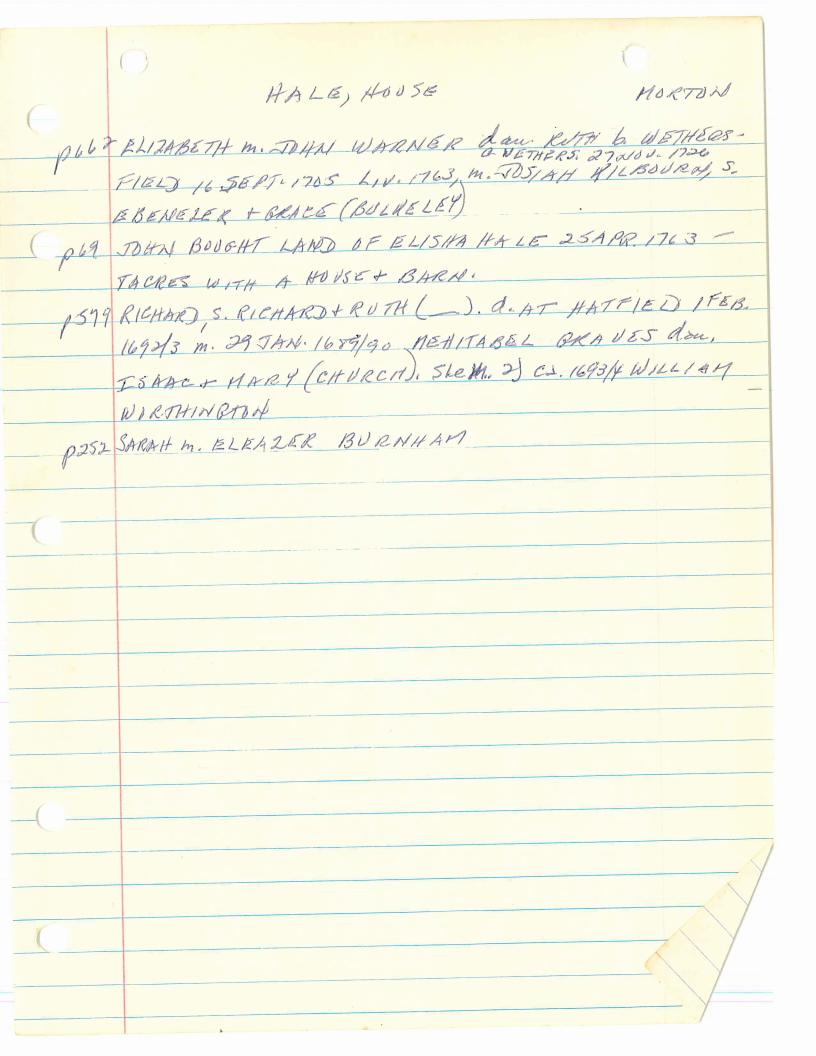 HALE, HOUSE MORTON
p662 ELIZABETH m. JOHN WARNER dau. RUTH b. WETHERS-
@ WETHERS. 27 NOV. 1726
FIELD 16 SEPT. 1705 LIV. 1763, m. JOSIAH KILBOURN, S.
EBENEZER + GRACE (BULKELEY)
p69 JOHN BOUGHT LAND OF ELISHA HALE 25 APR. 1763 —
7 ACRES WITH A HOUSE + BARN.
p599 RICHARD, S. RICHARD + RUTH (__). d. AT HATFIELD 1 FEB.
1692/3 m. 29 JAN. 1689/90 MEHITABEL GRAVES dau.
ISAAC + MARY (CHURCH). She m. 2) ca. 1693/4 WILLIAM
WORTHINGTON
p252 SARAH m. ELEAZER BURNHAM